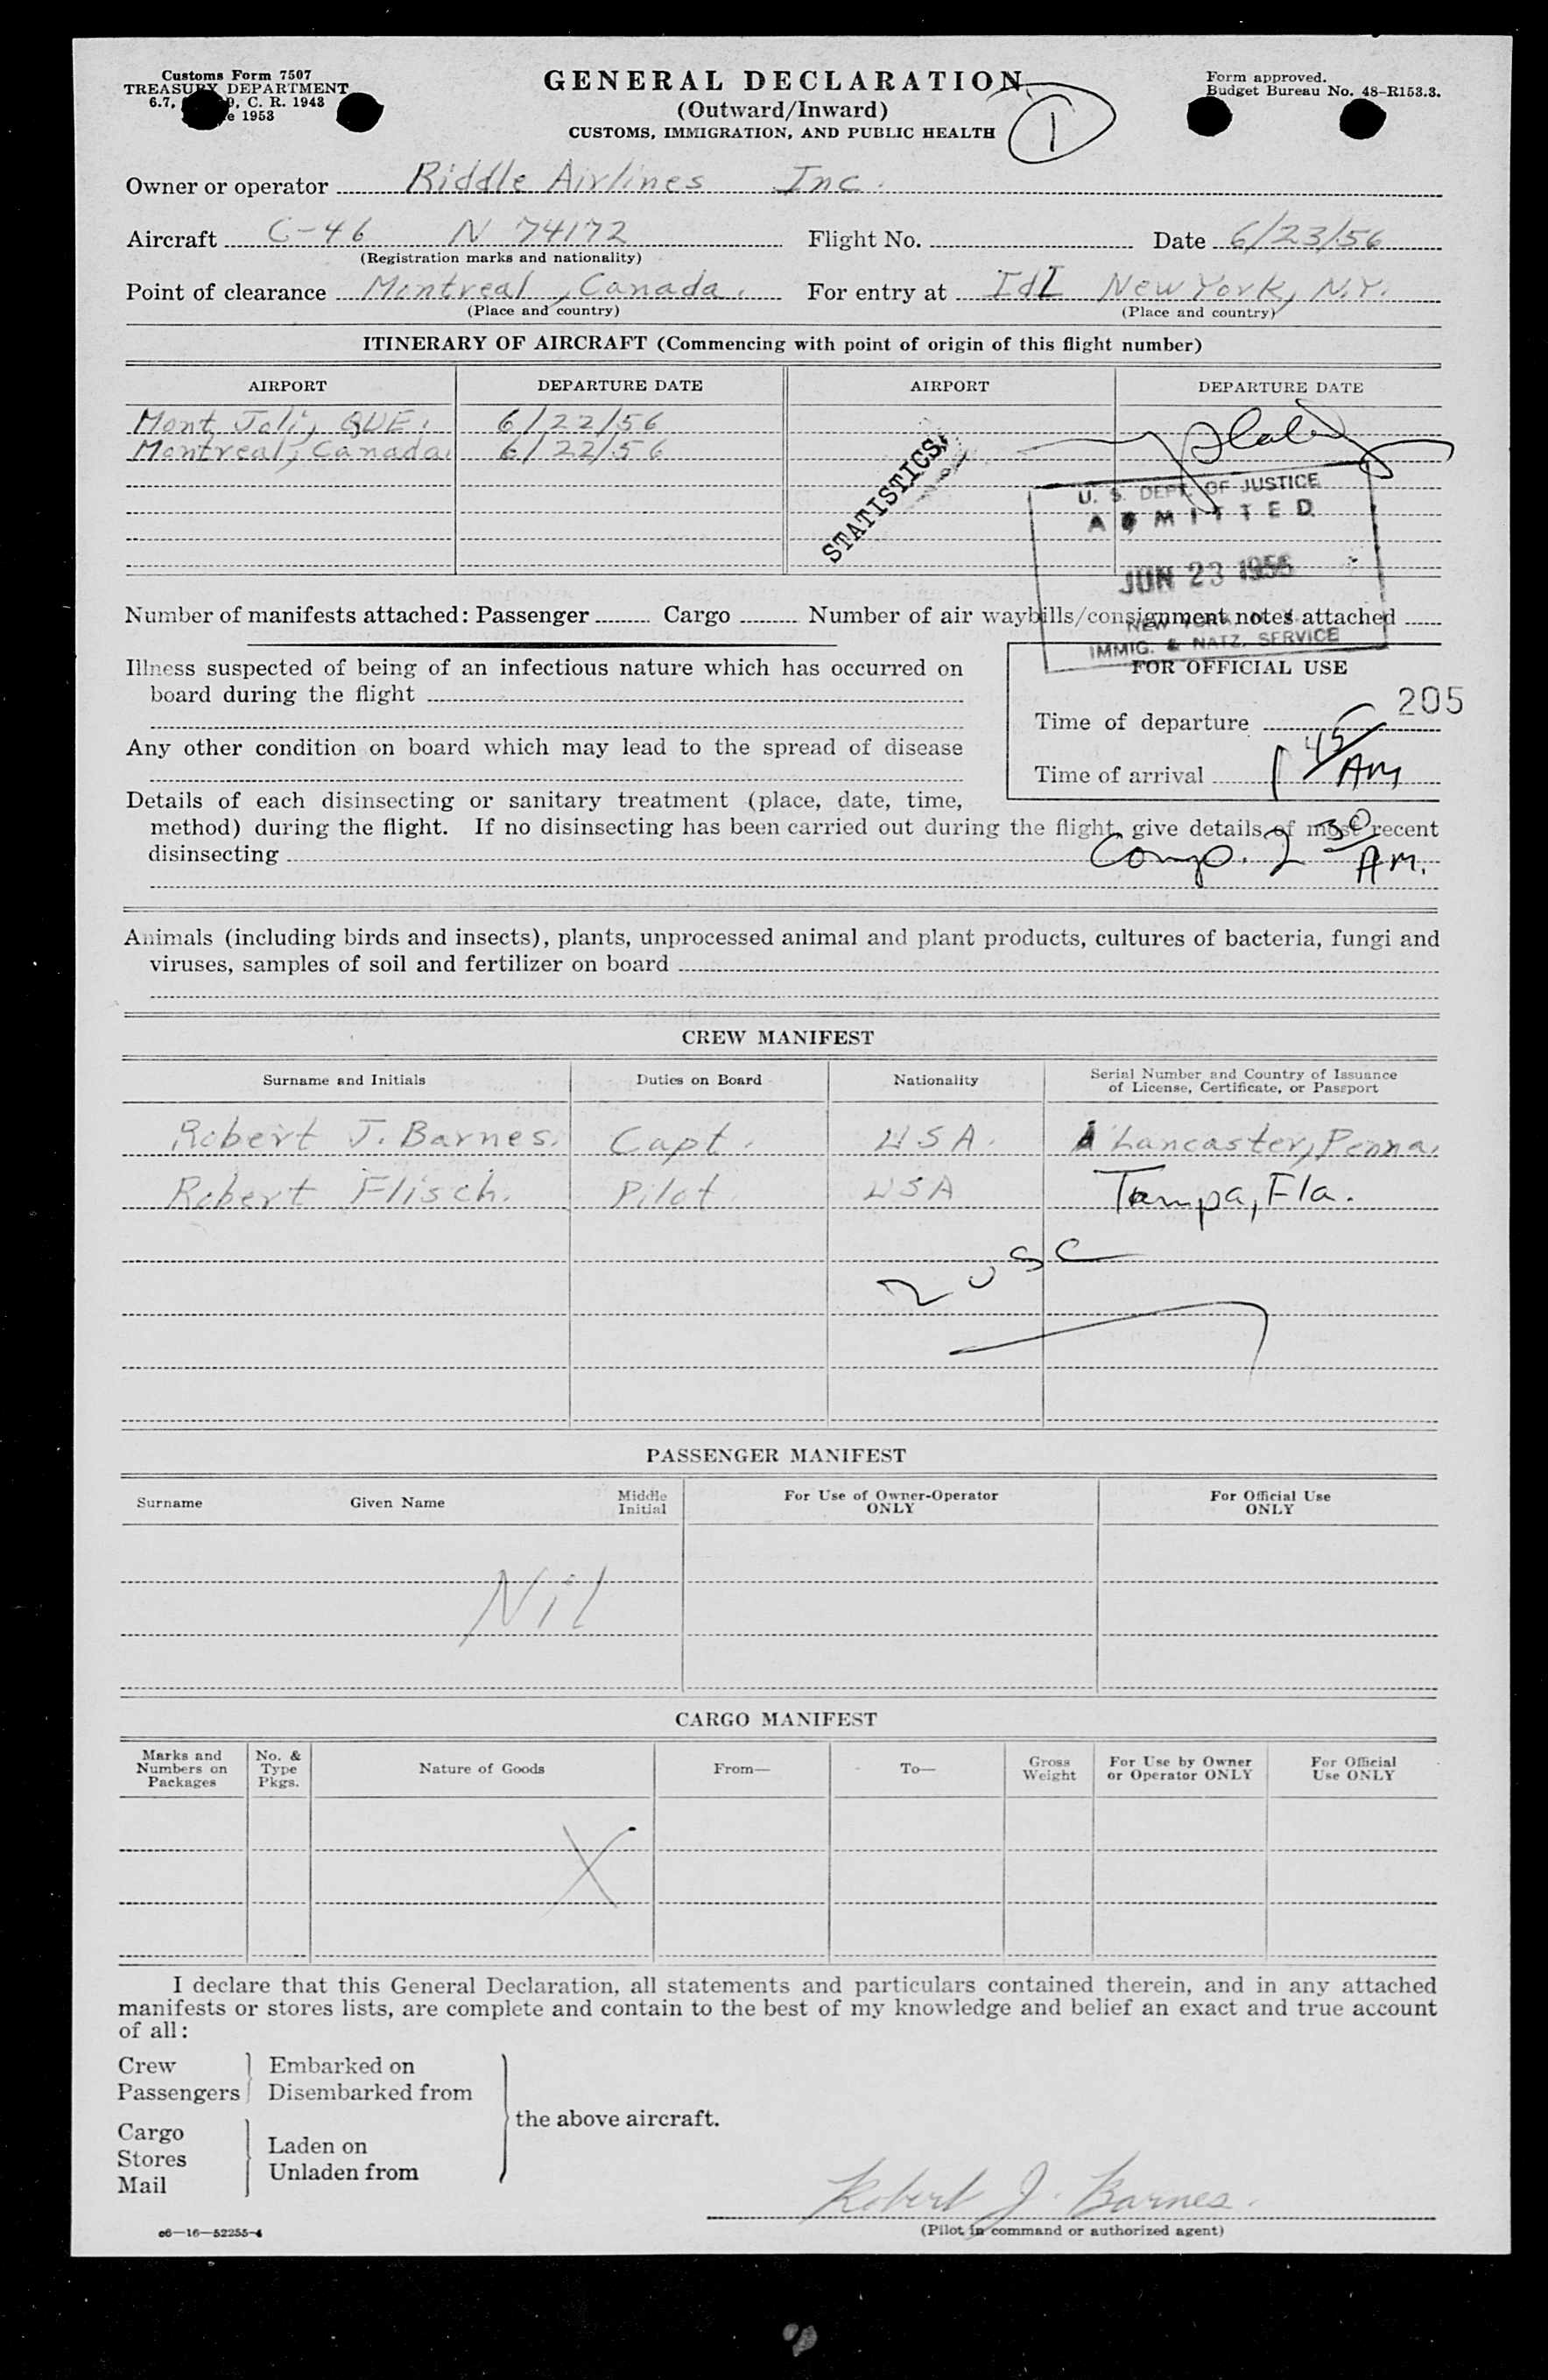 Customs Form 7507
TREASURY DEPARTMENT
6.7, C. R. 1943
1953
GENERAL DECLARATION
(Outward/Inward)
CUSTOMS, IMMIGRATION, AND PUBLIC HEALTH
1
Form approved.
Budget Bureau No. 48-R153.3.
Owner or operator Riddle Airlines Inc.
Aircraft C-46 N 74172 Flight No. Date 6/23/56
(Registration marks and nationality)
Point of clearance Montreal, Canada. For entry at IdI New York, N.Y.
(Place and country) (Place and country)
ITINERARY OF AIRCRAFT (Commencing with point of origin of this flight number)
AIRPORT DEPARTURE DATE AIRPORT DEPARTURE DATE
Mont Joli, QUE. 6/22/56
Montreal, Canada. 6/22/56
STATISTICS
U. S. DEPT. OF JUSTICE
ADMITTED
JUN 23 1956
NEW YORK, N. Y.
IMMIG. & NATZ. SERVICE
Number of manifests attached: Passenger Cargo Number of air waybills/consignment notes attached
Illness suspected of being of an infectious nature which has occurred on
board during the flight
Any other condition on board which may lead to the spread of disease
FOR OFFICIAL USE
205
Time of departure
Time of arrival 1 45 AM
Details of each disinsecting or sanitary treatment (place, date, time,
method) during the flight. If no disinsecting has been carried out during the flight, give details of most recent
disinsecting
Comp. 2 30 AM.
Animals (including birds and insects), plants, unprocessed animal and plant products, cultures of bacteria, fungi and
viruses, samples of soil and fertilizer on board
CREW MANIFEST
Surname and Initials Duties on Board Nationality Serial Number and Country of Issuance
of License, Certificate, or Passport
Robert J. Barnes. Capt. USA. Lancaster, Penna.
Robert Flisch. Pilot USA Tampa, Fla.
2 USC
PASSENGER MANIFEST
Surname Given Name Middle Initial For Use of Owner-Operator ONLY For Official Use ONLY
Nil
CARGO MANIFEST
Marks and Numbers on Packages No. & Type Pkgs. Nature of Goods From— To— Gross Weight For Use by Owner or Operator ONLY For Official Use ONLY
X
I declare that this General Declaration, all statements and particulars contained therein, and in any attached
manifests or stores lists, are complete and contain to the best of my knowledge and belief an exact and true account
of all:
Crew Embarked on
Passengers Disembarked from
the above aircraft.
Cargo
Laden on
Stores
Unladen from
Mail
Robert J. Barnes.
(Pilot in command or authorized agent)
c6—16—52255-4